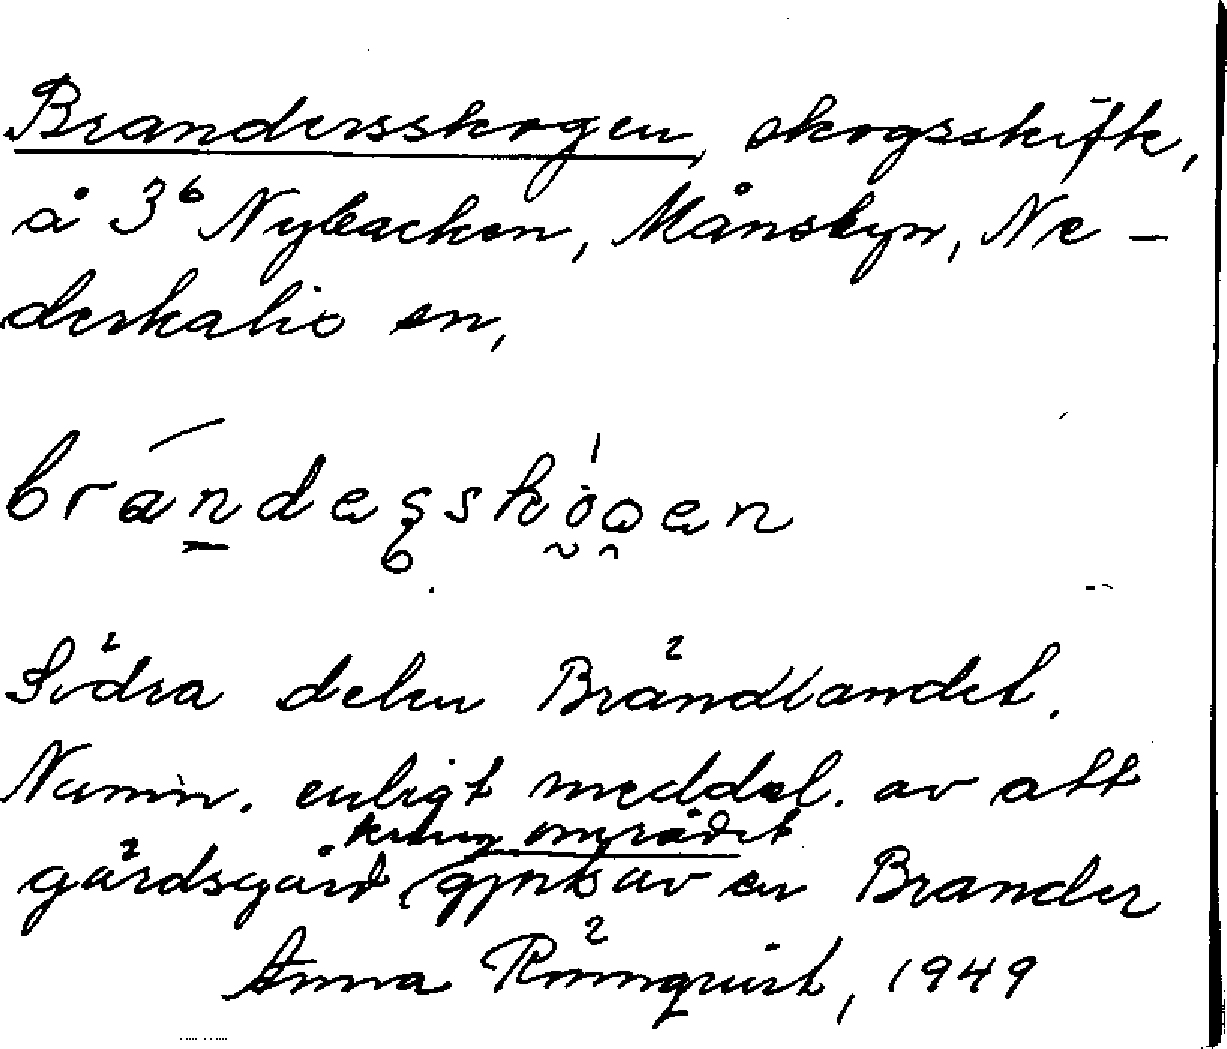 Brandersskogen, skogsskifte,
å 3⁶ Nybacken, Månsbyn, Ne-
derkalio en,
brandesskȯgen
Södra delen Brändlandet.
Namn. enligt meddel. av att
kring området
gärdsgård gjorts av en Brander
Anna Rönnquist, 1949